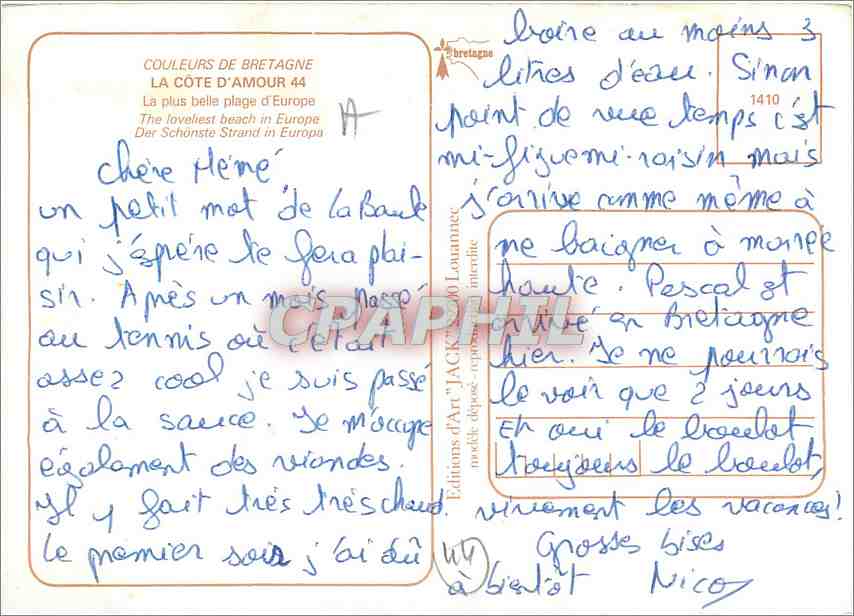 COULEURS DE BRETAGNE
LA CÔTE D'AMOUR 44
La plus belle plage d'Europe
The loveliest beach in Europe
Der Schönste Strand in Europa
A
Chère Mémé
un petit mot de La Baule
qui j'éspére te fera plai-
sir. Après un mois passé
au tennis où c'était
assez cool je suis passé
à la sauce. Je m'occupe
également des viandes.
Il y fait très très chaud.
le premier soir j'ai dû
bretagne
1410
boire au moins 3
litres d'eau. Sinon
point de vue temps c'est
mi-figue mi-raisin mais
j'arrive comme même à
me baigner à marée
haute. Pascal est
arrivé en Bretagne
hier. Je ne pourrais
le voir que 2 jours
Eh oui le boulot
toujours le boulot,
vivement les vacances!
Grosses bises
à bientôt Nico
44
Editions d'Art "JACK" 00 Louannec
modèle déposé - reproduction interdite
CPAPHIL